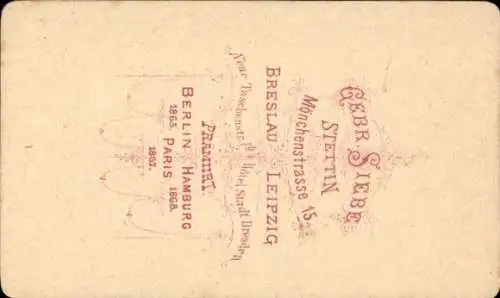 GEBR. SIEBE
STETTIN
Mönchenstrasse 15.
BRESLAU LEIPZIG
Neue Taschenstr. 19 Hôtel Stadt Dresden
PRÄMIIRT.
BERLIN HAMBURG
1865. PARIS 1868.
1867.